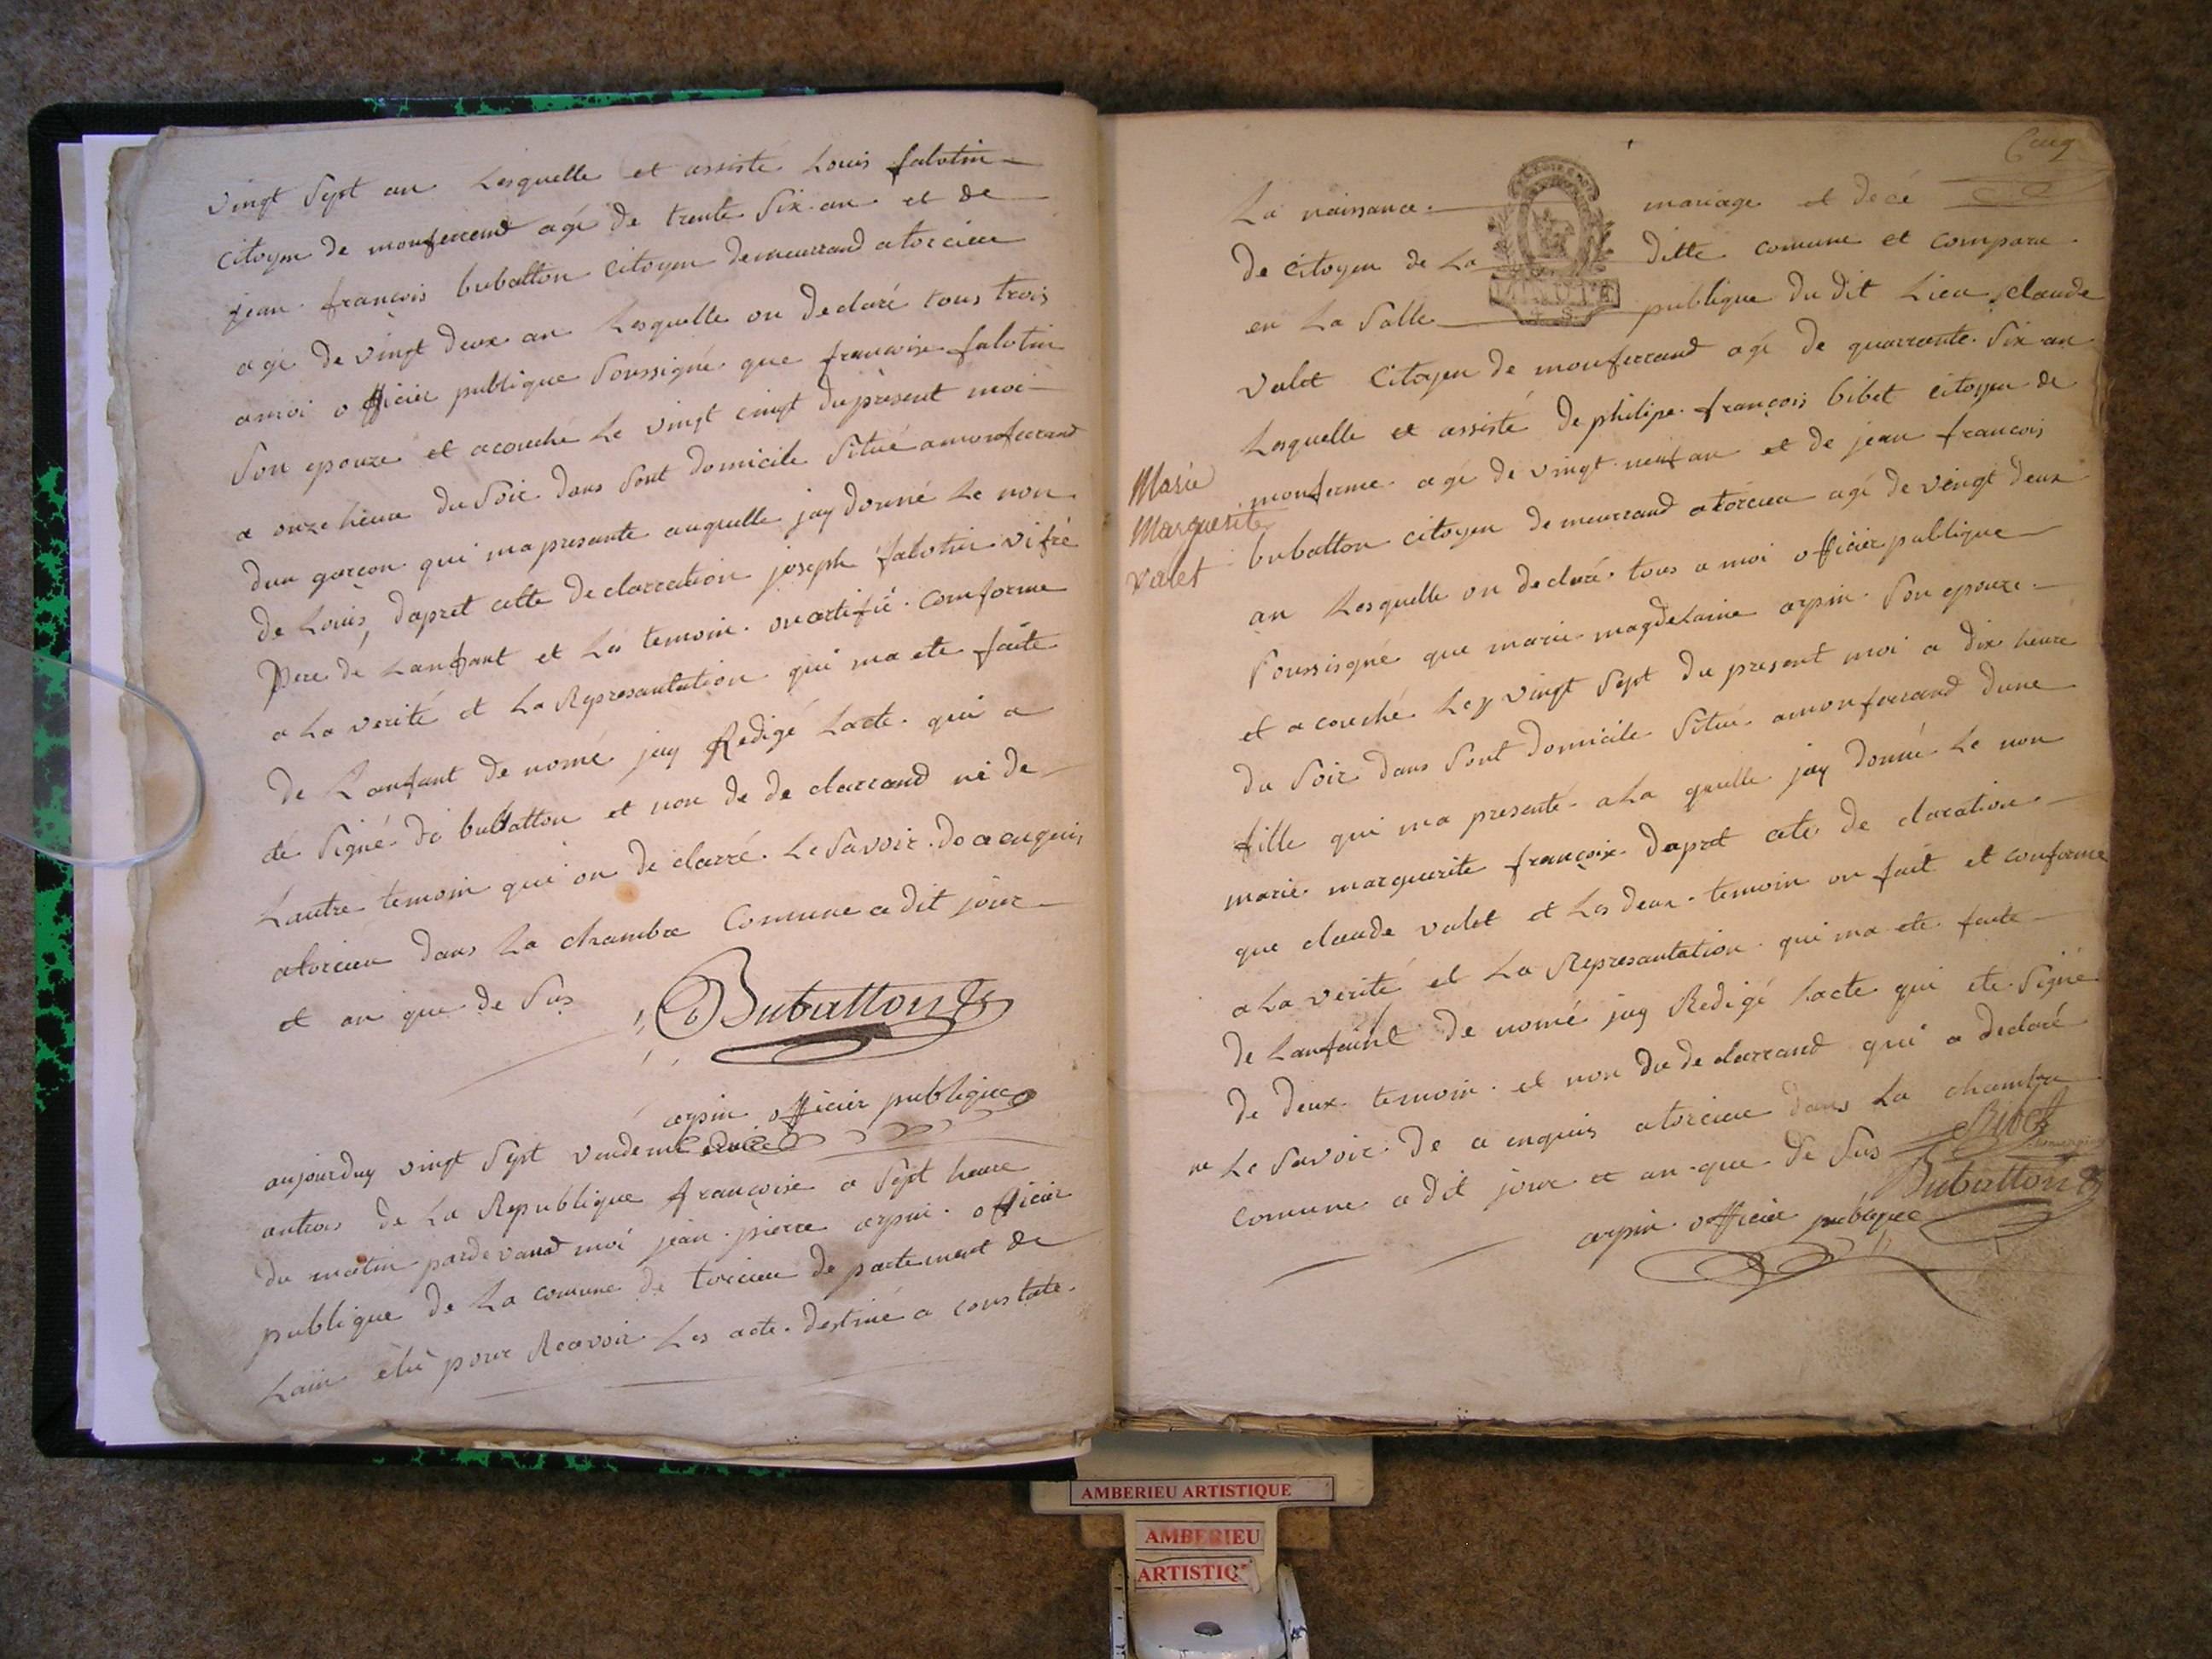 vingt Sept an Lesquelle et assisté Louis falotin
citoyen de monferrend agé de trente Six an et de
jean françois bubatton citoyen demeurrand a torcieu
agé de vingt deux an Lesquelle on declaré tous trois
a moi officier publique Soussigné que francoise falotin
Son epouze et acouché Le vingt cingt du présent moi
a onze heure du Soir dans Sont domicile Situé a monferrand
dun garçon qui ma presante auquelle jay donné Le non
de Louis, dapret cette declarration joseph falotin
Pere de Lanfant et Les temoin on certifié conforme
a La verité et La Representation qui ma ete faite
de Lanfant de nomé jay Redigé Lacte qui a
ete Signé de bubatton et non de declarrand ni de
Lautre temoin qui on declarré Le Savoir de a enquis
a torcieu dans La chambre Comune a dit jour
et an que de Sus
Bubatton
arpin officier publique
aujourduy vingt Sept
antrois de La Republique françoise a Sept heure
du matin pardevand moi jean pierre arpin officier
publique de La comune de torcieu departement de
Lain élu pour Recevoir Les acte destiné a constate
La naissance mariage et decé
de citoyen de La ditte comune et compare
en La Salle publique du dit Lieu claude
valet Citoyen de monferrand agé de quarrante Six an
Lesquelle et assisté de philipe françois bibet citoyen de
monferme agé de vingt neuf an et de jean francois
Marie
Marguerite
valet
bubatton citoyen demeurrand a torcieu agé de vingt deux
an Lesquelle on declaré tous a moi officier publique
Soussigné que marie magdelaine arpin Son epouze
et acouché Le vingt Sept du present moi a dix heure
du Soir dans Sont domicile Situé a monferrand dune
fille qui ma presenté a La quelle jay donné Le non
marie marguerite françoise dapret cete declaration
que claude valet et Les deux temoin on fait et conforme
a La verité et La Representation qui ma ete faite
de Lanfant de nomé jay Redigé Lacte qui ete Signé
de deux temoin et non du declarrand qui a declaré
ne Le Savoir de a enquis a torcieu dans La chambre
Comune a dit jour et an que de Sus
Bubatton
arpin officier publique
AMBERIEU ARTISTIQUE
AMBERIEU
ARTISTIQ